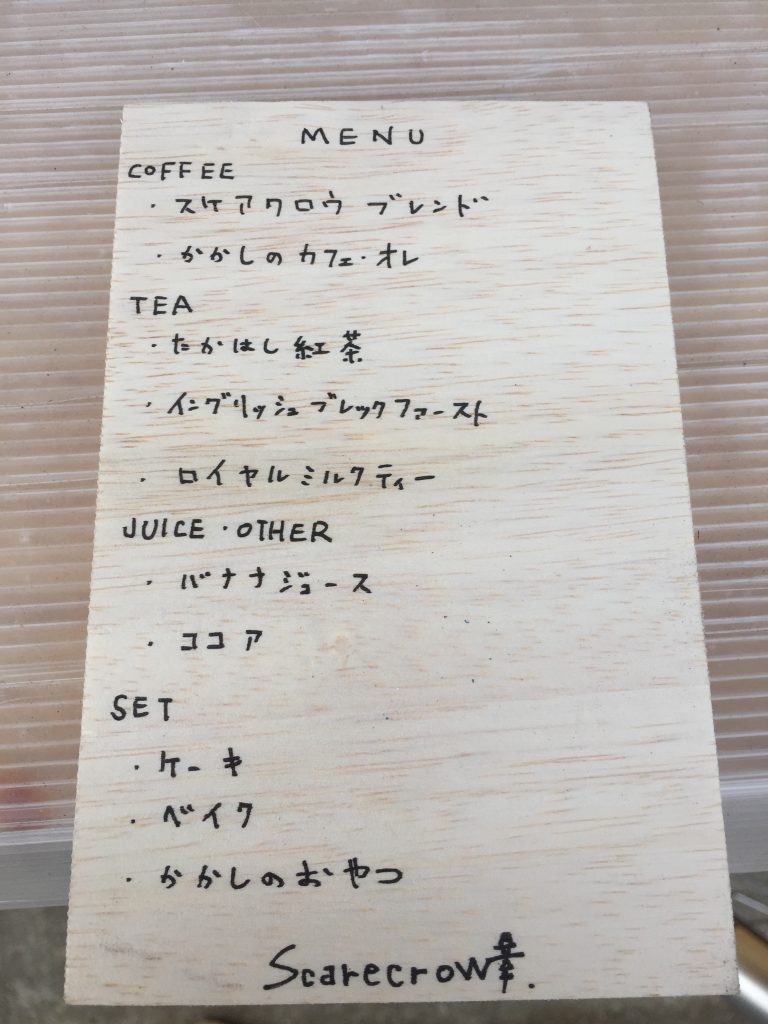 MENU
COFFEE
・スケアクロウ ブレンド
・かかしのカフェ・オレ
TEA
・たかはし紅茶
・イングリッシュブレックファースト
・ロイヤルミルクティー
JUICE・OTHER
・バナナジュース
・ココア
SET
・ケーキ
・ベイク
・かかしのおやつ
Scarecrow